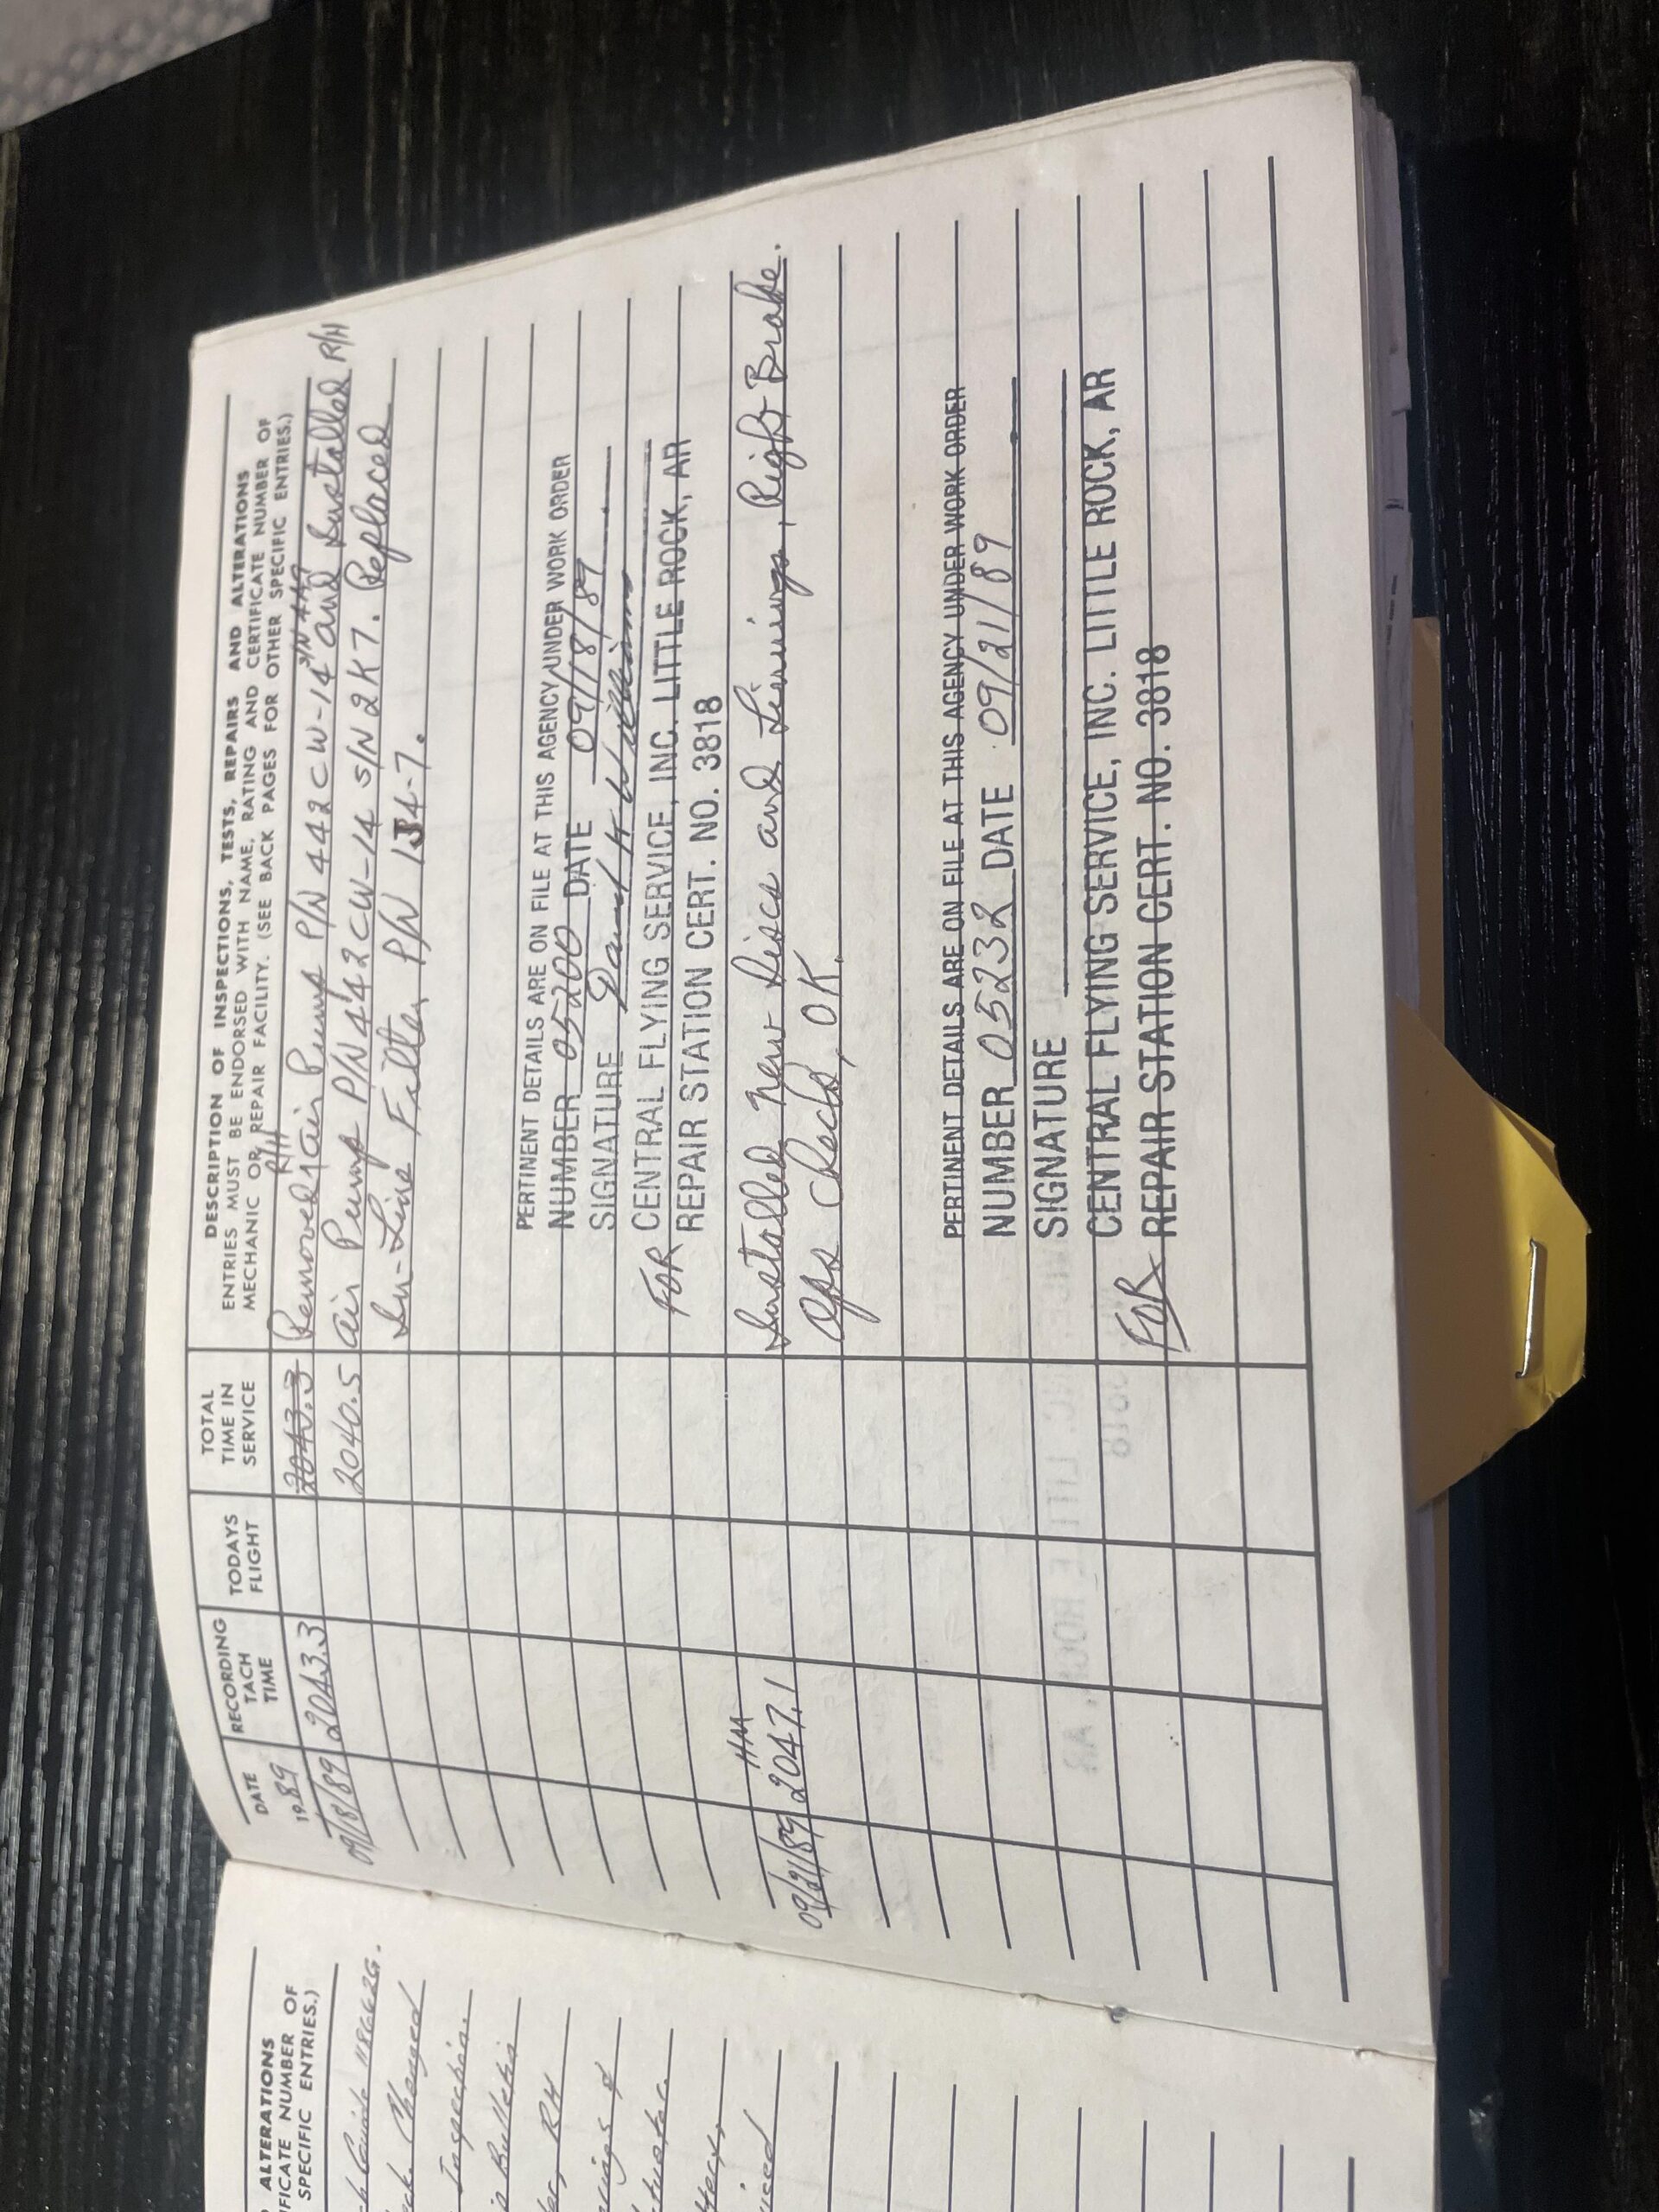 ALTERATIONS
IFICATE NUMBER OF
SPECIFIC ENTRIES.)
Changed
Inspection.
Bulletin
RH
DATE
19 89
RECORDING
TACH
TIME
TODAYS
FLIGHT
TOTAL
TIME IN
SERVICE
DESCRIPTION OF INSPECTIONS, TESTS, REPAIRS AND ALTERATIONS
ENTRIES MUST BE ENDORSED WITH NAME, RATING AND CERTIFICATE NUMBER OF
MECHANIC OR REPAIR FACILITY. (SEE BACK PAGES FOR OTHER SPECIFIC ENTRIES.)
2043.3 Removed R/H Air Pump P/N 442CW-14 and Installed R/H
09/18/89 2043.3 2040.5 Air Pump P/N 442CW-14 S/N 2K7. Replaced
In-Line Filter P/N 1J4-7.
PERTINENT DETAILS ARE ON FILE AT THIS AGENCY UNDER WORK ORDER
NUMBER 05200 DATE 09/18/89
SIGNATURE Williams
FOR CENTRAL FLYING SERVICE, INC. LITTLE ROCK, AR
REPAIR STATION CERT. NO. 3818
HM
09/21/89 2047.1 Installed New Discs and Linings, Right Brake.
Ops Checks, OK.
PERTINENT DETAILS ARE ON FILE AT THIS AGENCY UNDER WORK ORDER
NUMBER 05232 DATE 09/21/89
SIGNATURE
CENTRAL FLYING SERVICE, INC. LITTLE ROCK, AR
FOR REPAIR STATION CERT. NO. 3818